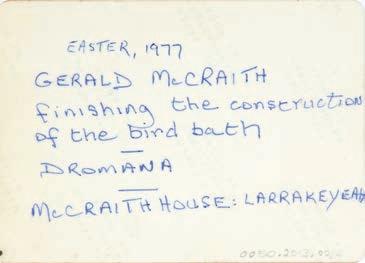 EASTER, 1977
GERALD McCRAITH
finishing the construction
of the bird bath
DROMANA
McCRAITH HOUSE: LARRAKEYEAH